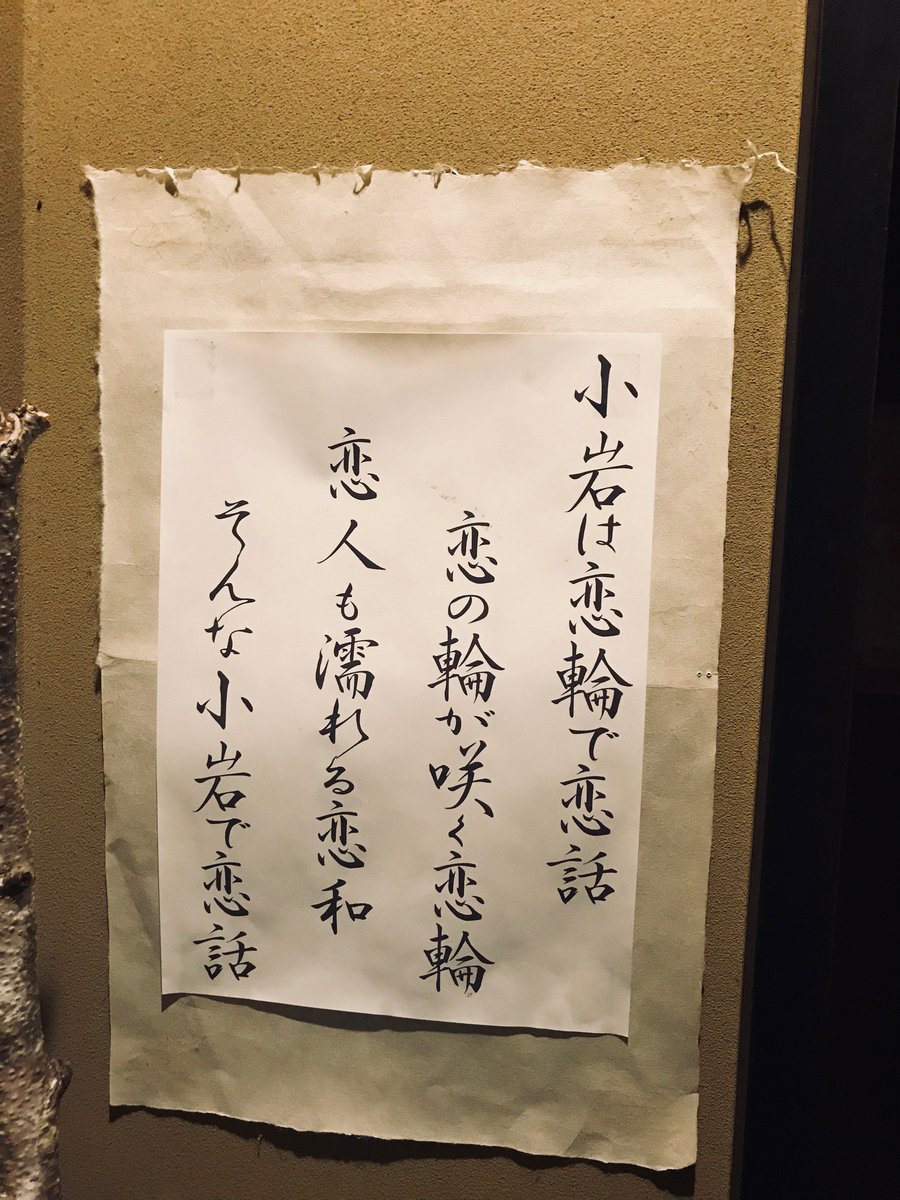 小岩は恋輪で恋話
恋の輪が咲く恋輪
恋人も濡れる恋和
そんな小岩で恋話